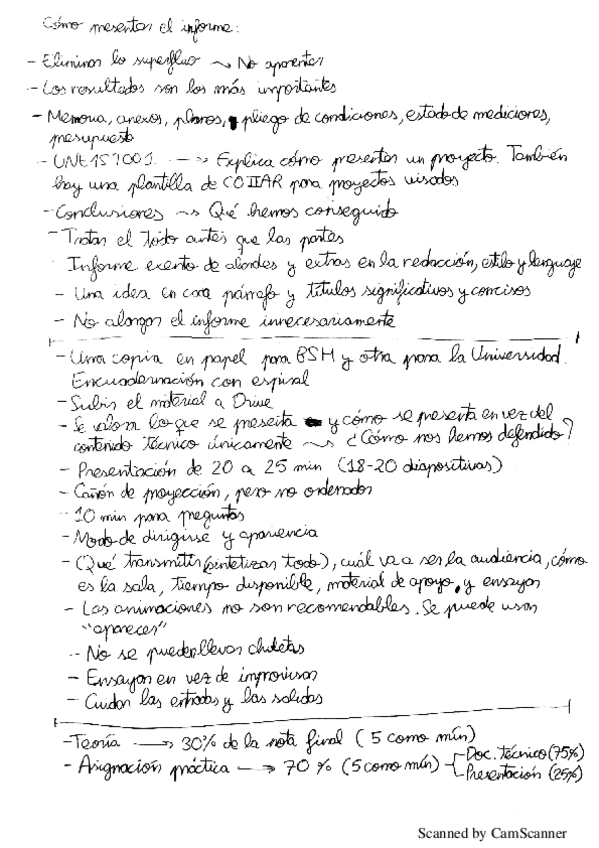 Cómo presentar el informe:
- Eliminar lo superfluo ~> No aparentar
- Los resultados son los más importantes
- Memoria, anexos, planos, pliego de condiciones, estado de mediciones,
presupuesto
- UNE 157001. --> Explica cómo presentar un proyecto. También
hay una plantilla de COIIAR para proyectos visados
- Conclusiones ~> Qué hemos conseguido
- Tratar el todo antes que las partes
Informe exento de alardes y extras en la redacción, estilo y lenguaje
- Una idea en cada párrafo y títulos significativos y concisos
- No alargar el informe innecesariamente
- Una copia en papel para BSH y otra para la Universidad.
Encuadernación con espiral
- Subir el material a Drive
- Se valora lo que se presenta y cómo se presenta en vez del
contenido técnico únicamente ~> ¿Cómo nos hemos defendido?
- Presentación de 20 a 25 min (18-20 diapositivas)
- Cañón de proyección, pero no ordenador
- 10 min para preguntas
- Modo de dirigirse y apariencia
- Qué transmitir (sintetizar todo), cuál va a ser la audiencia, cómo
es la sala, tiempo disponible, material de apoyo, y ensayar
- Las animaciones no son recomendables. Se puede usar
"aparecer"
- No se pueden llevar chuletas
- Ensayar en vez de improvisar
- Cuidar las entradas y las salidas
- Teoría --> 30% de la nota final (5 como mín)
- Asignación práctica --> 70% (5 como mín) - Doc. técnico (75%)
- Presentación (25%)
Scanned by CamScanner